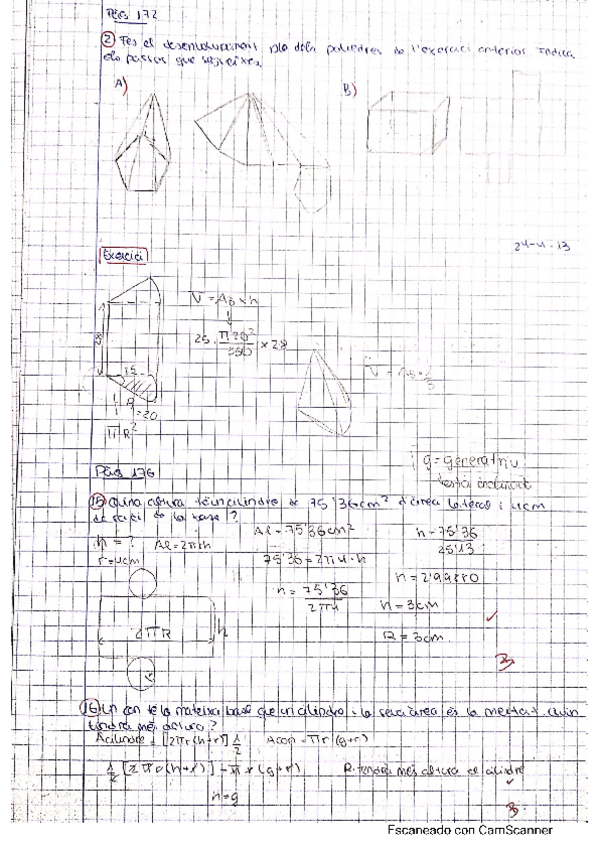 Pàg 172
2) Fes el desenvolupament dels dos poliedres de l'exercici anterior. Indica
els passos que segueixes.
A)
B)
24-4-13
Exercici
V = AB × h
25 · π20² / 360 × 28
28
25
R = 20
πR²
V =
g = generatriu
està inclinat
Pàg 176
15 Quina altura té un cilindre de 75'36cm² d'àrea lateral i 4cm
de radi de la base?
h = ? Al = 2πrh
r = 4cm
Al = 75'36cm²
75'36 = 2π4·h
h = 75'36 / 2π4
h = 75'36 / 25'13
h = 2'99880
h = 3cm
R = 3cm
2πR
h
r
B
16 Un con té la mateixa base que un cilindre i la seva àrea és la meitat. Quin
tindrà més altura?
Acilindre = [2πr(h+r)] 1/2 Acon = πr(g+r)
1/2 [2πr(h+r)] = πr(g+r) R: tendrà més altura el cilindre
h = g
B
Escaneado con CamScanner